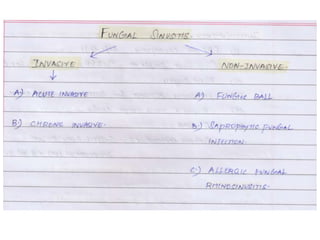 FUNGAL SINUSITIS
INVASIVE
NON-INVASIVE
A) ACUTE INVASIVE
A) FUNGUS BALL
B) CHRONIC INVASIVE.
B) SAPROPHYTIC FUNGAL
INFECTION.
C) ALLERGIC FUNGAL
RHINOSINUSITIS.